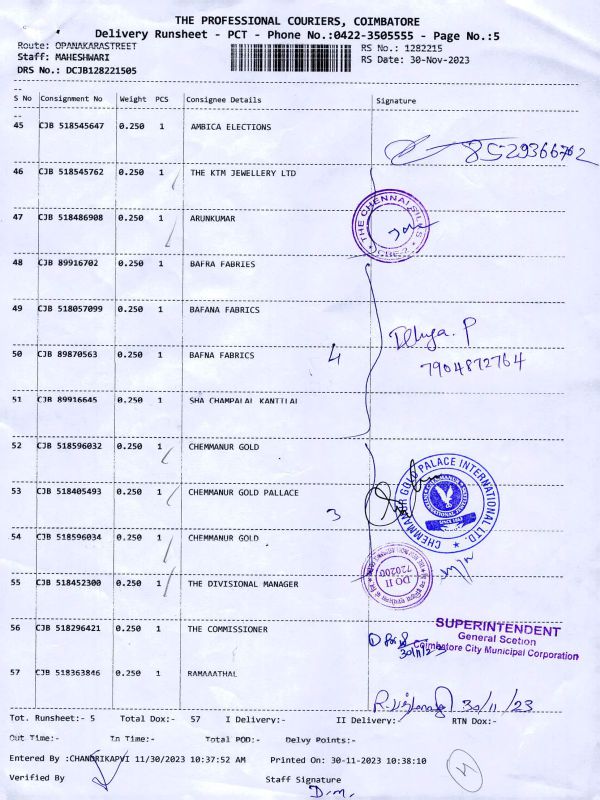 THE PROFESSIONAL COURIERS, COIMBATORE
Delivery Runsheet - PCT - Phone No.:0422-3505555 - Page No.:5
Route: OPANAKARASTREET RS No.: 1282215
Staff: MAHESHWARI RS Date: 30-Nov-2023
DRS No.: DCJB128221505
S No Consignment No Weight PCS Consignee Details Signature
45 CJB 518545647 0.250 1 AMBICA ELECTIONS
8529366762
46 CJB 518545762 0.250 1 THE KTM JEWELLERY LTD
THE CHENNAI SILKS
CBE-2
47 CJB 518486908 0.250 1 ARUNKUMAR
48 CJB 89916702 0.250 1 BAFRA FABRIES
49 CJB 518057099 0.250 1 BAFANA FABRICS
50 CJB 89870563 0.250 1 BAFNA FABRICS 4
7904872764
51 CJB 89916645 0.250 1 SHA CHAMPALAL KANTTLAL
52 CJB 518596032 0.250 1 CHEMMANUR GOLD
CHEMMANUR GOLD PALACE INTERNATIONAL LTD.
53 CJB 518405493 0.250 1 CHEMMANUR GOLD PALLACE 3
54 CJB 518596034 0.250 1 CHEMMANUR GOLD
55 CJB 518452300 0.250 1 THE DIVISIONAL MANAGER
DO II
720200
56 CJB 518296421 0.250 1 THE COMMISSIONER
SUPERINTENDENT
General Scetion
Coimbatore City Municipal Corporation
57 CJB 518363846 0.250 1 RAMAAATHAL
30/11/23
Tot. Runsheet:- 5 Total Dox:- 57 I Delivery:- II Delivery:- RTN Dox:-
Out Time:- In Time:- Total POD:- Delvy Points:-
Entered By :CHANDRIKAPVI 11/30/2023 10:37:52 AM Printed On: 30-11-2023 10:38:10
Verified By Staff Signature
D.M.